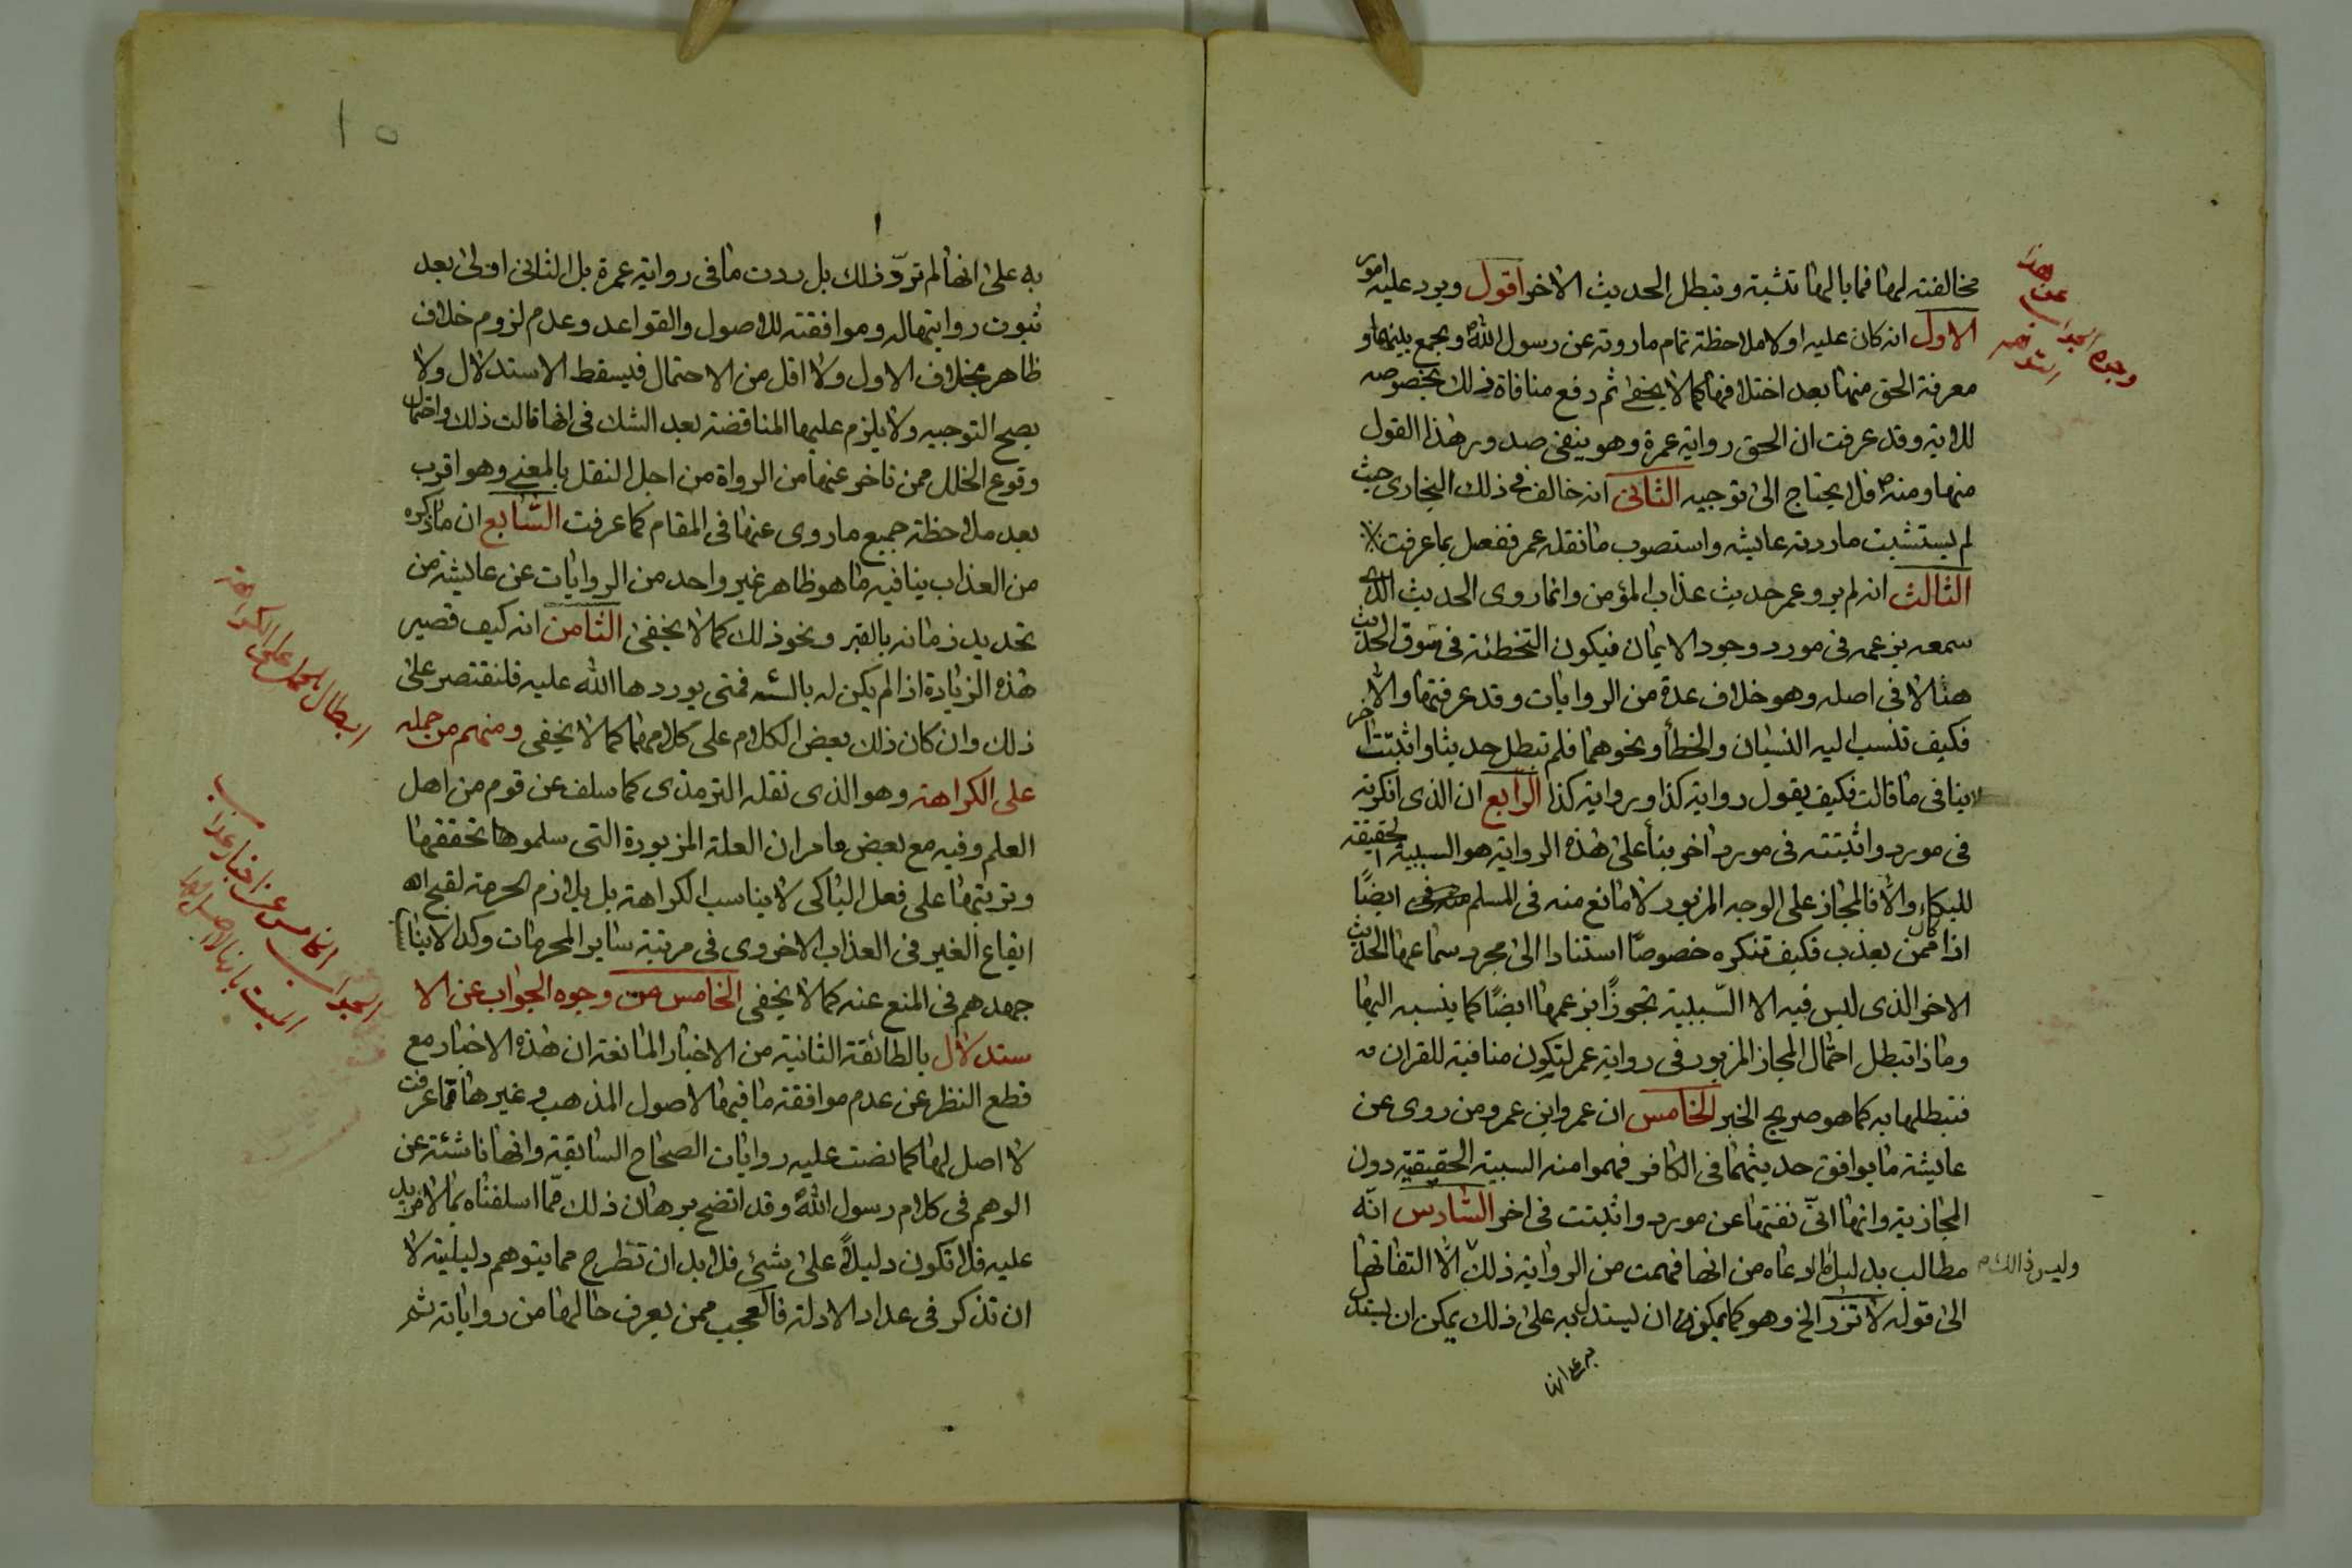 مخالفته لها فما بالها تثبته وتبطل الحديث الاخر اقول ويرد عليه امور
الاول انه كان عليه اولا ملاحظة تمام ما روته عن رسول الله ويجمع بينهما و
معرفة الحق منها بعد اختلافها كما لا يخفى ثم دفع منافاة ذلك بخصوصه
للاية وقد عرفت ان الحق رواية عمرة وهو ينفى صدور هذا القول
منها ومنه فلا يحتاج الى توجيه الثانى انه خالف فى ذلك البخارى حيث
لم يستثبت ما ردته عايشه واستصوب ما نقله عمر ففصل بما عرفت
الثالث انه لم يرو عمر حديث عذاب المؤمن وانما روى الحديث الذى
سمعه بزعمه فى مورد وجود الايمان فيكون التخطئة فى سوق الحديث
هنا لا فى اصله وهو خلاف عدة من الروايات وقد عرفتها والا
فكيف تنسب اليه النسيان والخطأ ونحوهما فلم تبطل حديثا واثبتت اخر
لا ينافى ما قالت فكيف يقول رواية كذا ورواية كذا الرابع ان الذى انكرته
فى مورد واثبتته فى مورد اخر بنأ على هذه الرواية هو السببية الحقيقة
للبكاء والا فالمجاز على الوجه المزبور لا مانع منه فى المسلم ايضًا
اذا كان ممن يعذب فكيف تنكره خصوصًا استنادا الى مجرد سماعها الحديث
الاخر الذى ليس فيه الا السببية تجوزًا بزعمها ايضًا كما ينسبه اليها
وماذا تبطل احتمال المجاز المزبور فى رواية عمر لتكون منافية للقران
فتبطلها به كما هو صريح الخبر الخامس ان عمر وابن عمر ومن روى عن
عايشة ما يوافق حديثهما فى الكافر فهموا منه السببية الحقيقية دون
المجازية وانها انّى نفتها عن مورد واثبتت فى اخر السادس انّه
مطالب بدليل ما ادعاه من انها فهمت من الرواية ذلك وليس ذالك الا التفاتها
الى قوله لا تزر الخ وهو كما يمكن ان يستدل به على ذلك يمكن ان يستدل
به على انها
وجوه الجواب عن هذا
١٥
به على انها لم تردّ ذلك بل ردت ما فى رواية عمرة بل الثانى اولى بعد
ثبوت روايتها له وموافقته للاصول والقواعد وعدم لزوم خلاف
ظاهر بخلاف الاول ولا اقل من الاحتمال فيسقط الاستدلال ولا
يصح التوجيه ولا يلزم عليها المناقضة بعد الشك فى انها قالت ذلك واحتمال
وقوع الخلل ممن تاخر عنها من الرواة من اجل النقل بالمعنى وهو اقرب
بعد ملاحظة جميع ما روى عنها فى المقام كما عرفت السابع ان ما ذكره
من العذاب ينافيه ما هو ظاهر غير واحد من الروايات عن عايشة من
تحديد زمانه بالقبر ونحو ذلك كما لا يخفى الثامن انه كيف قصير
هذه الزيادة اذا لم يكن له بالسنه فمتى يوردها الله عليه فلنقتصر على
ذلك وان كان ذلك بعض الكلام على كلامهما كما لا يخفى ومنهم من حمله
على الكراهة وهو الذى نقله الترمذى كما سلف عن قوم من اهل
العلم وفيه مع بعض ما مر ان العلة المزبورة التى سلموها تحققها
وترتبها على فعل الباكى لا يناسب الكراهة بل يلازم الحرمة لقبح
ايقاع الغير فى العذاب الاخروى فى مرتبة ساير المحرمات وكذا لا
جهدهم فى المنع عنه كما لا يخفى الخامس من وجوه الجواب عن الا
ستدلال بالطائفة الثانية من الاخبار المانعة ان هذه الاخبار مع
قطع النظر عن عدم موافقة ما فيها لاصول المذهب وغيرها مما عرفت
لا اصل لها كما نصت عليه روايات الصحاح السابقة وانها ناشئة عن
الوهم فى كلام رسول الله وقد اتضح برهان ذلك ممّا اسلفناه بما لا مزيد
عليه فلا تكون دليلاً على شئ فلا بد ان تطرح مما يتوهم دليليته لا
ان تذكر فى عداد الادلة فالعجب ممن يعرف حالها من رواياته ثم
ابطال الحمل على الكراهة
الجواب الخامس عن اخبار عذاب
الميت بانها لا اصل لها